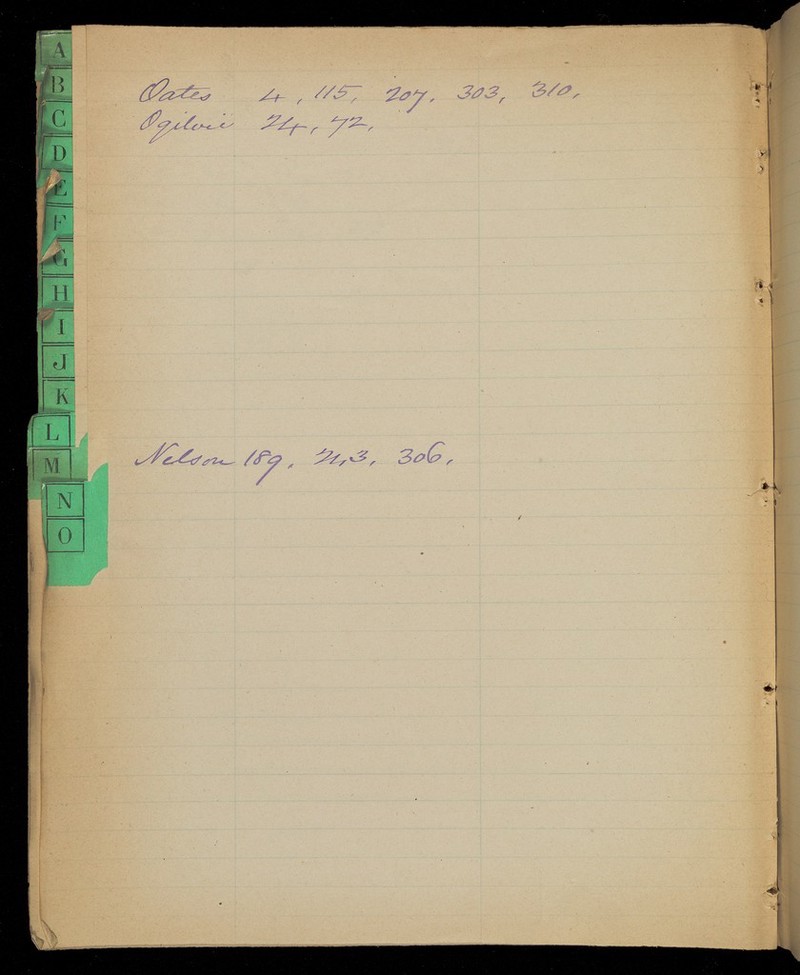 A
B
C
D
E
F
G
H
I
J
K
L
M
N
O
Oates 4, 115, 207, 303, 310,
Ogilvie 24, 72,
Nelson 189, 213, 306,